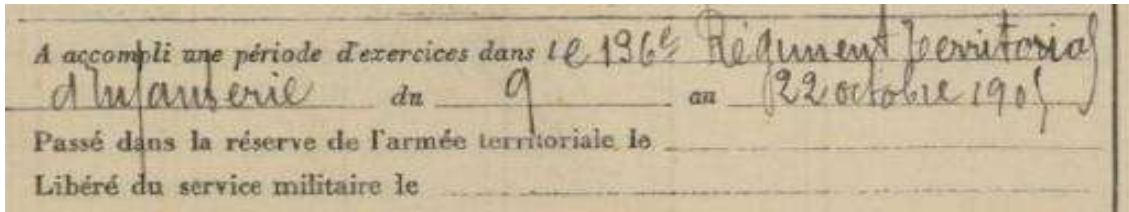 A accompli une période d'exercices dans le 136e Régiment Territorial
d'Infanterie du 9 au 22 octobre 1905
Passé dans la réserve de l'armée territoriale le
Libéré du service militaire le